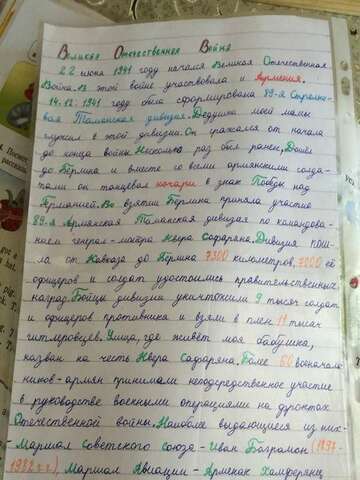 Великая Отечественная Война
22 июня 1941 году начался Великая Отечественная
Война. В этой войне участвовала и Армения.
14.12.1941 году была сформирована 89-я Стрелко-
вая Таманская дивизия. Дедушка моей мамы
служил в этой дивизии. Он сражался от начала
до конца войны. Несколько раз был ранен. Дошёл
до Берлина и вместе со всеми армянскими солда-
тами он танцевал кочари в знак Победы над
Германией. Во взятии Берлина приняла участие
89-я Армянская Таманская дивизия по командова-
нием генерал-майора Нвера Сафаряна. Дивизия пош-
ла от Кавказа до Берлина 7500 километров. 7200 её
офицеров и солдат удостоились правительственных
наград. Бойцы дивизии уничтожили 9 тысяч солдат
и офицеров противника и взяли в плен 11 тысяч
гитлеровцев. Улица, где живёт моя бабушка,
назван на честь Нвера Сафаряна. Более 60 военачаль
ников-армян принимали непосредственное участие
в руководстве военными операциями на фронтах
Отечественной войны. Наиболее выдающиеся из них-
Маршал Советского Союза - Иван Баграмян (1897-
1982 г.г.), Маршал Авиации - Арменак Ханферянц